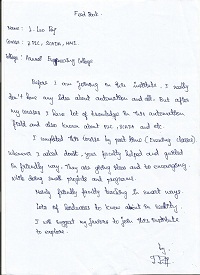 Feed Back
Name : J. Leo Raj
Course : PLC, SCADA, HMI.
College : Pannai Engineering College
Before I am joining in this institute. I really
don't have any idea about automation and all. But after
my courses I have lot of knowledge in this automation
field and also known about PLC, SCADA and etc.
I completed this course by part time (Evening classes)
whenever I about doubt, your faculty helped and guided
in friendly way. They are giving ideas and to encouraging
with doing small projects and programs.
friendly faculty teaching in smart ways
Lots of to know about in reality.
I will suggest my juniors to join this institute
to explore.
by